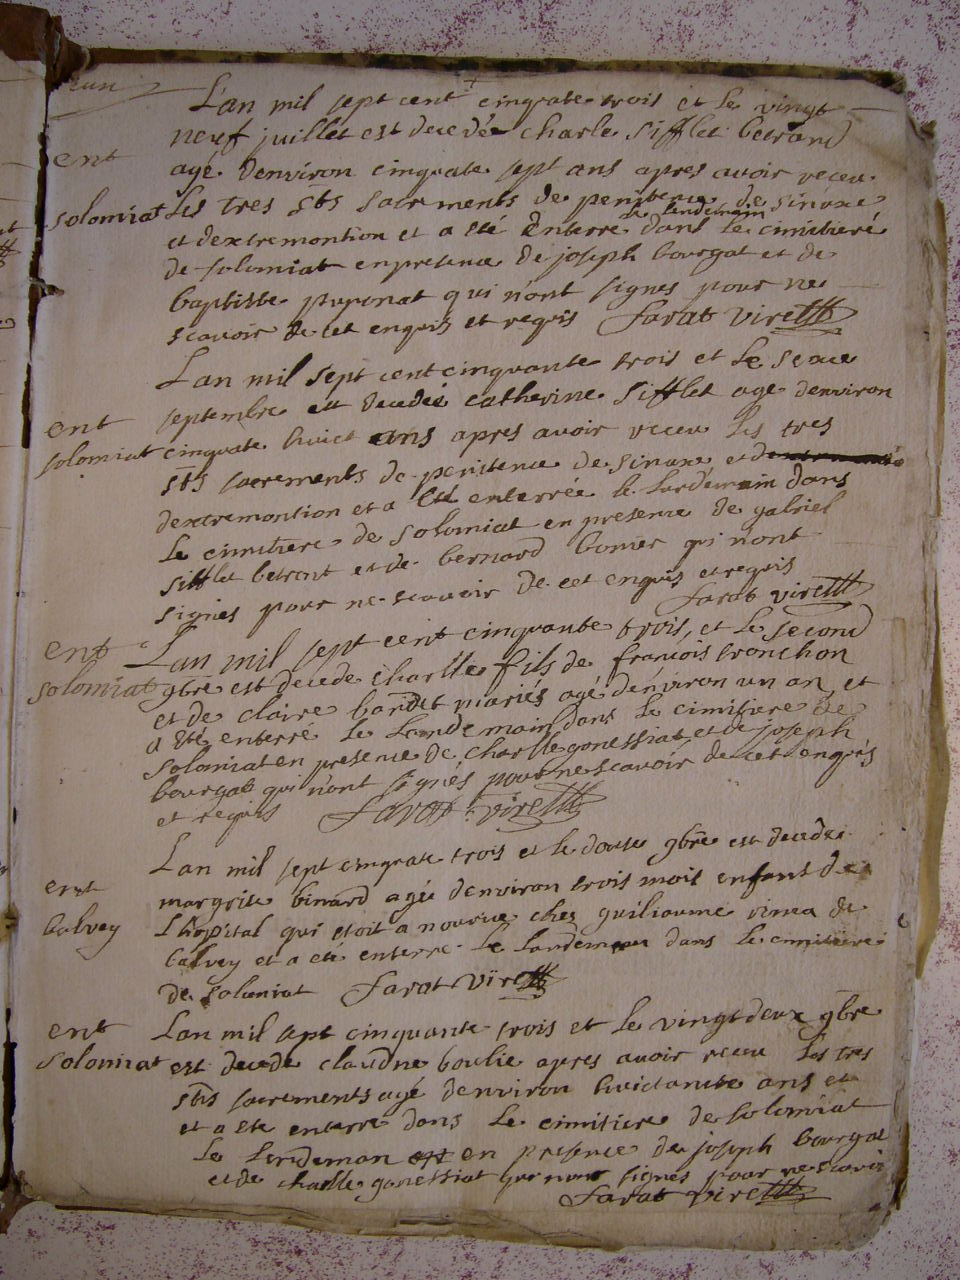 L'an mil sept cent cinquate trois et le vingt
neuf juillet est decedée charle Sifflet betrand
ent
agé denviron cinquate sept ans apres avoir receu
solomiat
les tres sts sacrements de penitence de sinaxe
et dextremontion et a eté enterre le lendemain dans le cimitieré
de solomiat enpresence de joseph bourgat et de
baptiste puponat qui n'ont signes pour ne
scavoir de cet enquis et requis Farat viret
Lan mil sept cent cinquante trois et le seace
ent
septembre est decedeé catherine Sifflet age denviron
solomiat
cinquate huict ans apres avoir receu les tres
sts sacrements de penitence de sinaxe et
dextremontion et a eté enterrée le landemain dans
le cimitiere de solomiat en presence de gabriel
Sifflet betront et de bernard bomer qui n'ont
signés pour ne scavoir de cet enquis et requis
Farat viret
ent
Lan mil sept cent cinquante trois, et le second
solomiat
gbre est decede charlle fils de francois tronchon
et de claire bandet mariés agé denviron un an et
a eté enterré le landemain dans le cimitiere de
solomiat en presence de charlle gonessiat et de joseph
bourgat qui n'ont signés pour ne scavoir de cet enquis
et requis Farat viret
Lan mil sept cinquate trois et le douse gbre est decedée
ent
margrite binard agée denviron trois mois enfant de
balvey
l'hopital qui etoit a nourice ches guiliaume vinea de
balvey et a eté enterre le landemain dans le cimitiere
de solomiat Farat viret
ent
Lan mil sept cinquante trois et le vingtdeux gbre
solomiat
est decede claudne boulie apres avoir receu les tres
sts sacrements agé denviron huictante ans et
et a ete enterre dans le cimitiere de solomiat
le lendeman en presence de joseph bourgat
et de charlle gonessiat qui n'ont signes pour ne scavoir
Farat viret